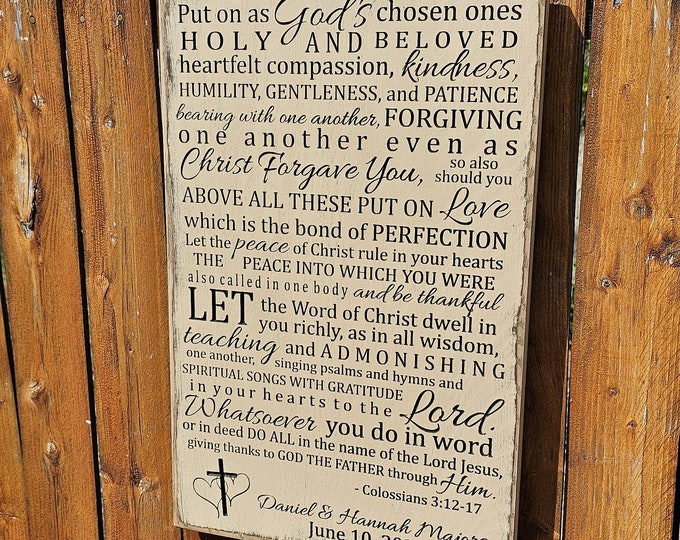 Put on as God's chosen ones
HOLY AND BELOVED
heartfelt compassion, kindness,
HUMILITY, GENTLENESS, and PATIENCE
bearing with one another, FORGIVING
one another even as
Christ Forgave You, so also should you
ABOVE ALL THESE PUT ON Love
which is the bond of PERFECTION
Let the peace of Christ rule in your hearts
THE PEACE INTO WHICH YOU WERE
also called in one body and be thankful
LET the Word of Christ dwell in
you richly, as in all wisdom,
teaching and ADMONISHING
one another, singing psalms and hymns and
SPIRITUAL SONGS WITH GRATITUDE
in your hearts to the Lord.
Whatsoever you do in word
or in deed DO ALL in the name of the Lord Jesus,
giving thanks to GOD THE FATHER through Him.
- Colossians 3:12-17
Daniel & Hannah Majors
June 10,